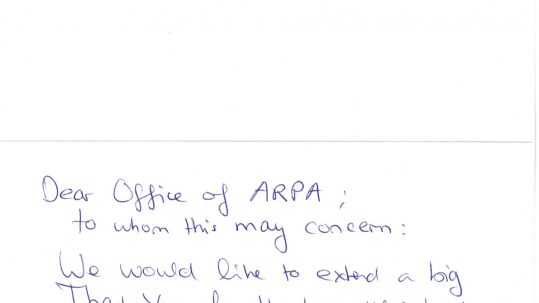 Dear Office of ARPA ;
to whom this may concern :
We would like to extend a big